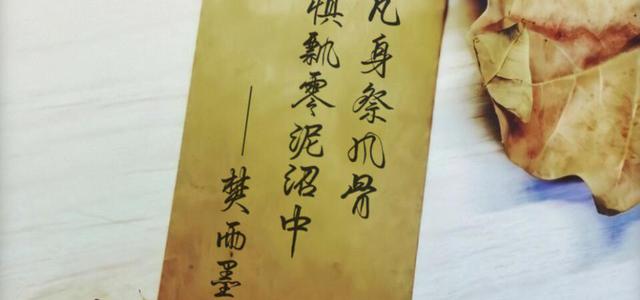 凡身祭风骨
惧飘零泥沼中
——樊雨墨